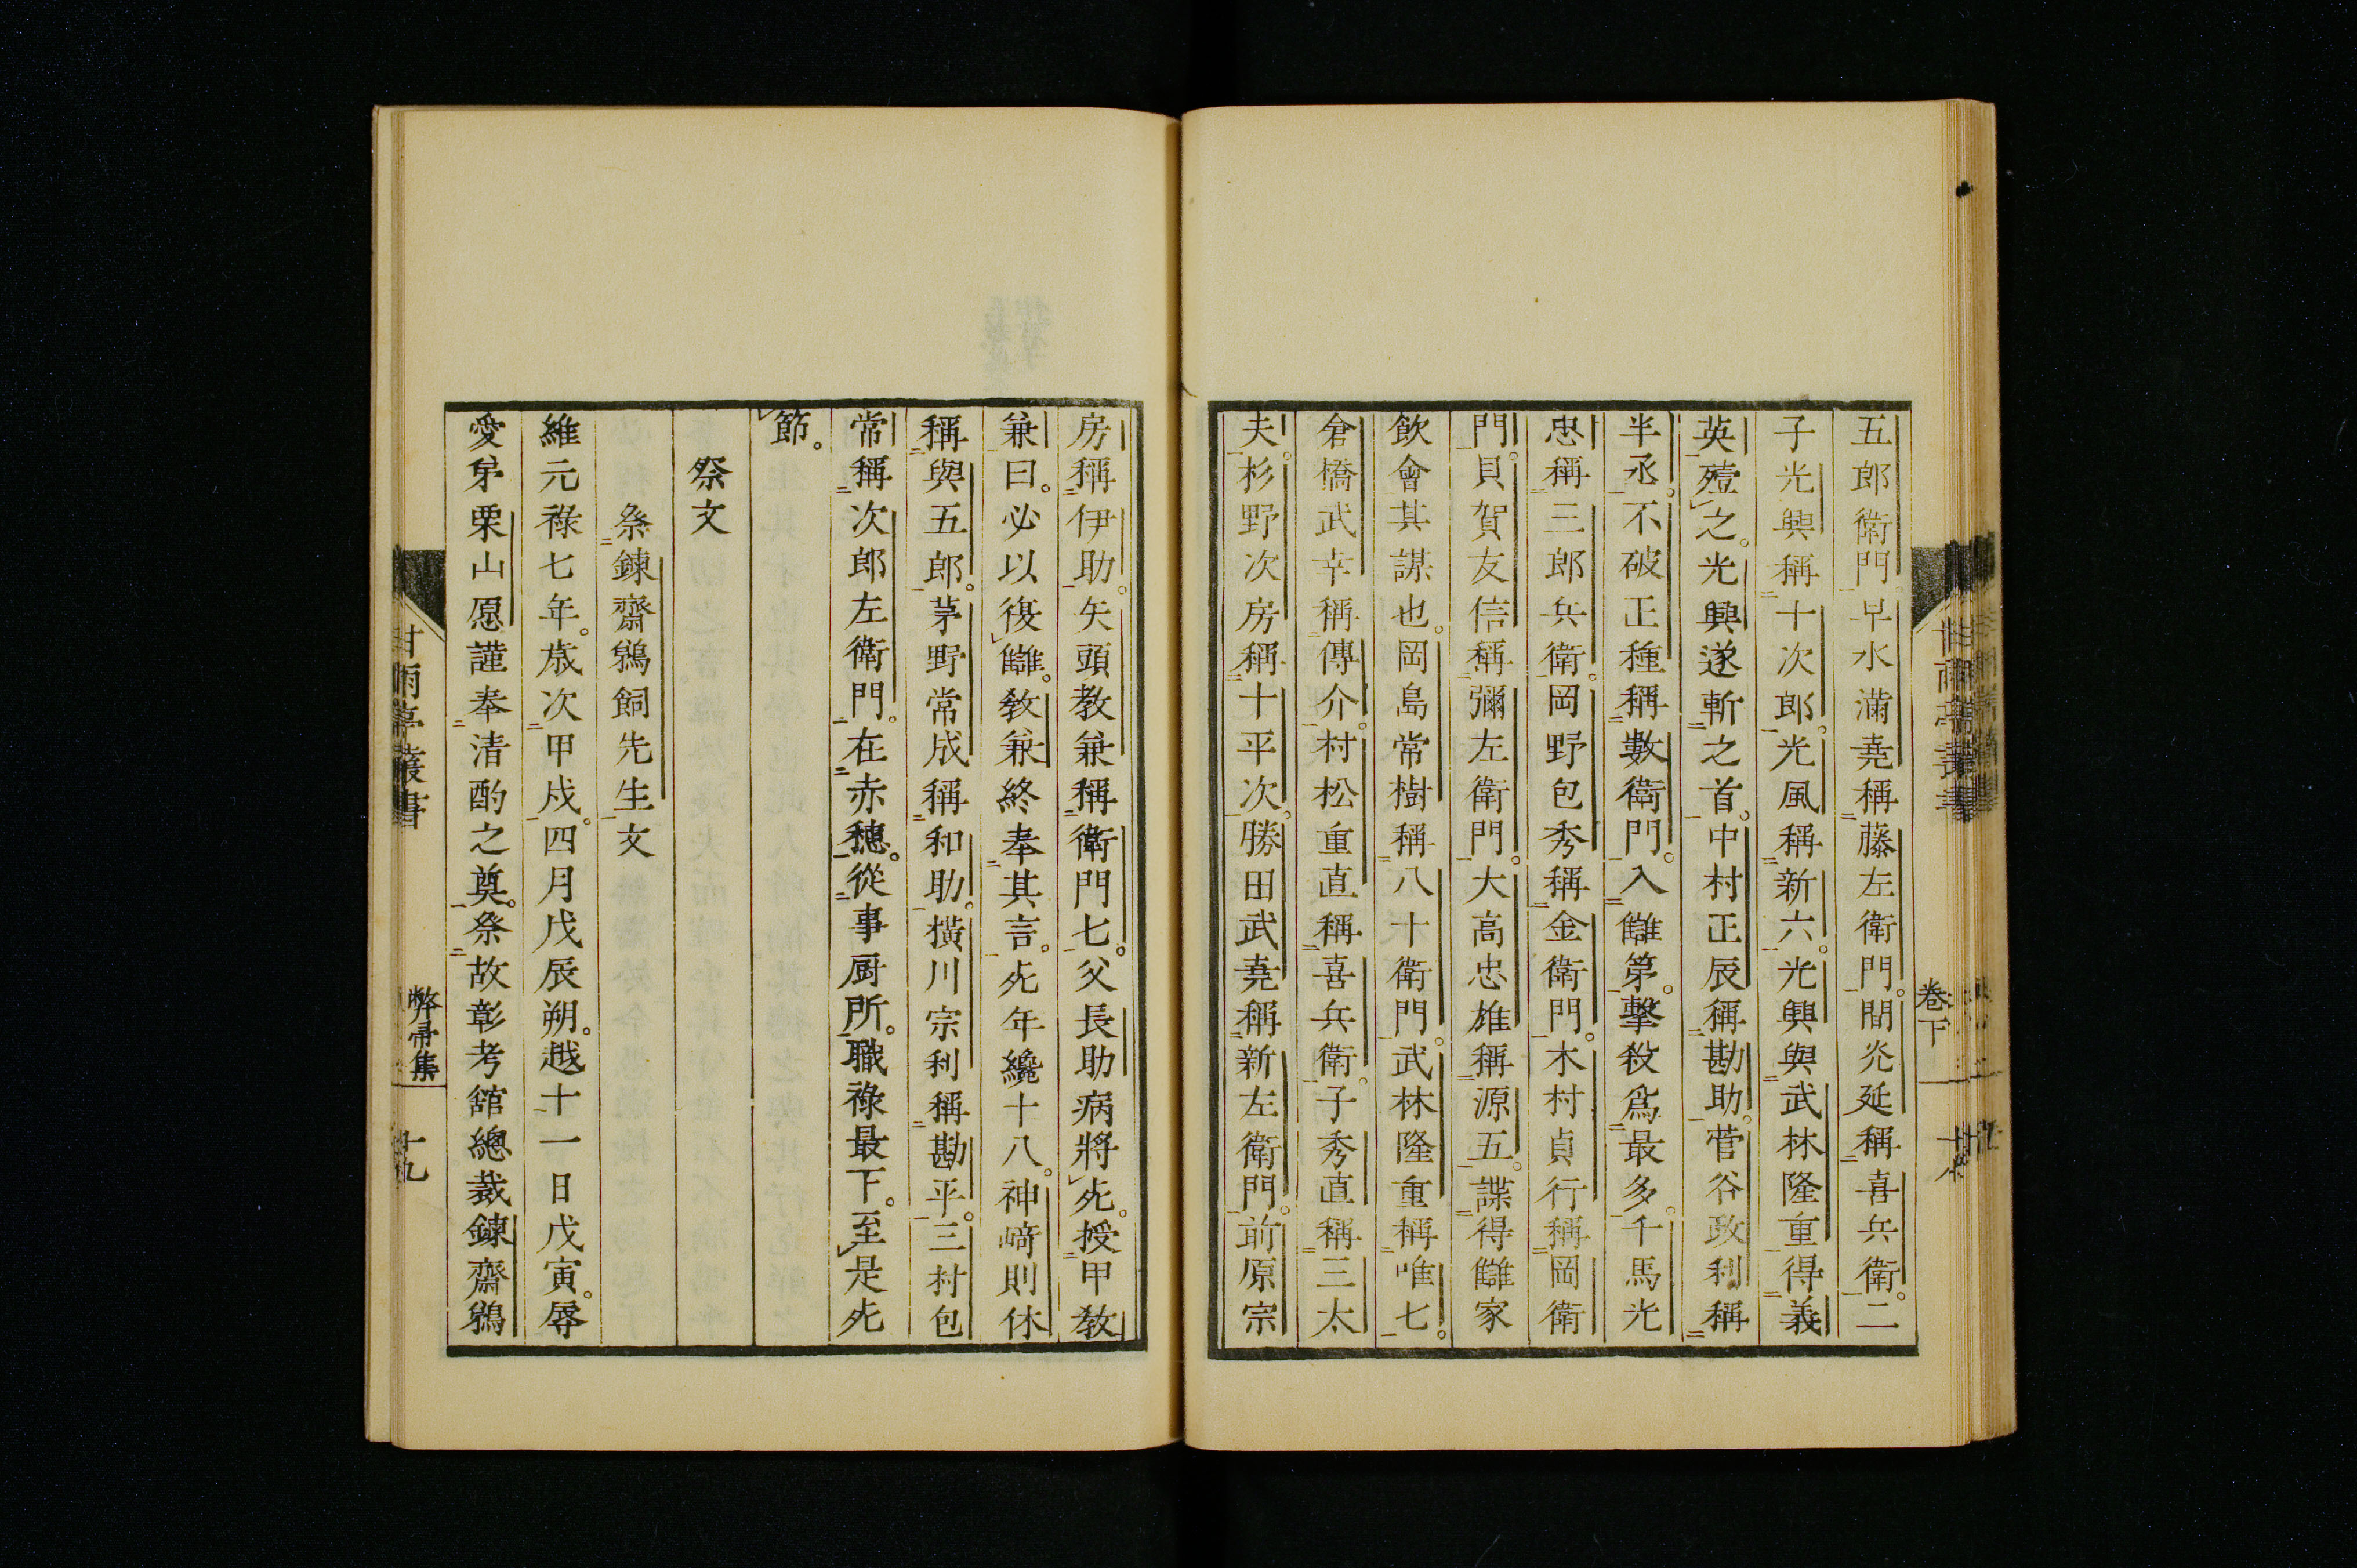 五郎衛門。早水滿堯稱藤左衛門。間光延稱喜兵衛。二
子光興稱十次郎。光風稱新六。光興與武林隆重得義
英殪之。光興遂斬之首。中村正辰稱勘助。菅谷政利稱
半丞。不破正種稱數衛門。入讎第。擊殺爲最多。千馬光
忠稱三郎兵衛。岡野包秀稱金衛門。木村貞行稱岡衛
門。貝賀友信稱彌左衛門。大高忠雄稱源五。諜得讎家
飲會其謀也。岡島常樹稱八十衛門。武林隆重稱唯七。
倉橋武幸稱傳介。村松重直稱喜兵衛。子秀直稱三太
夫。杉野次房稱十平次。勝田武堯稱新左衛門。前原宗
卷下
房稱伊助。矢頭教兼稱衛門七。父長助病將死。授甲教
兼曰。必以復讎。教兼終奉其言。死年纔十八。神﨑則休
稱與五郎。茅野常成稱和助。橫川宗利稱勘平。三村包
常稱次郎左衛門。在赤穗。從事厨所。職祿最下。至是死
節。
祭文
祭鍊齋鵜飼先生文
維元祿七年。歲次甲戌。四月戊辰朔。越十一日戊寅。辱
愛弟栗山愿謹奉清酌之奠。祭故彰考舘總裁鍊齋鵜
甘雨亭叢書
弊帚集
十九